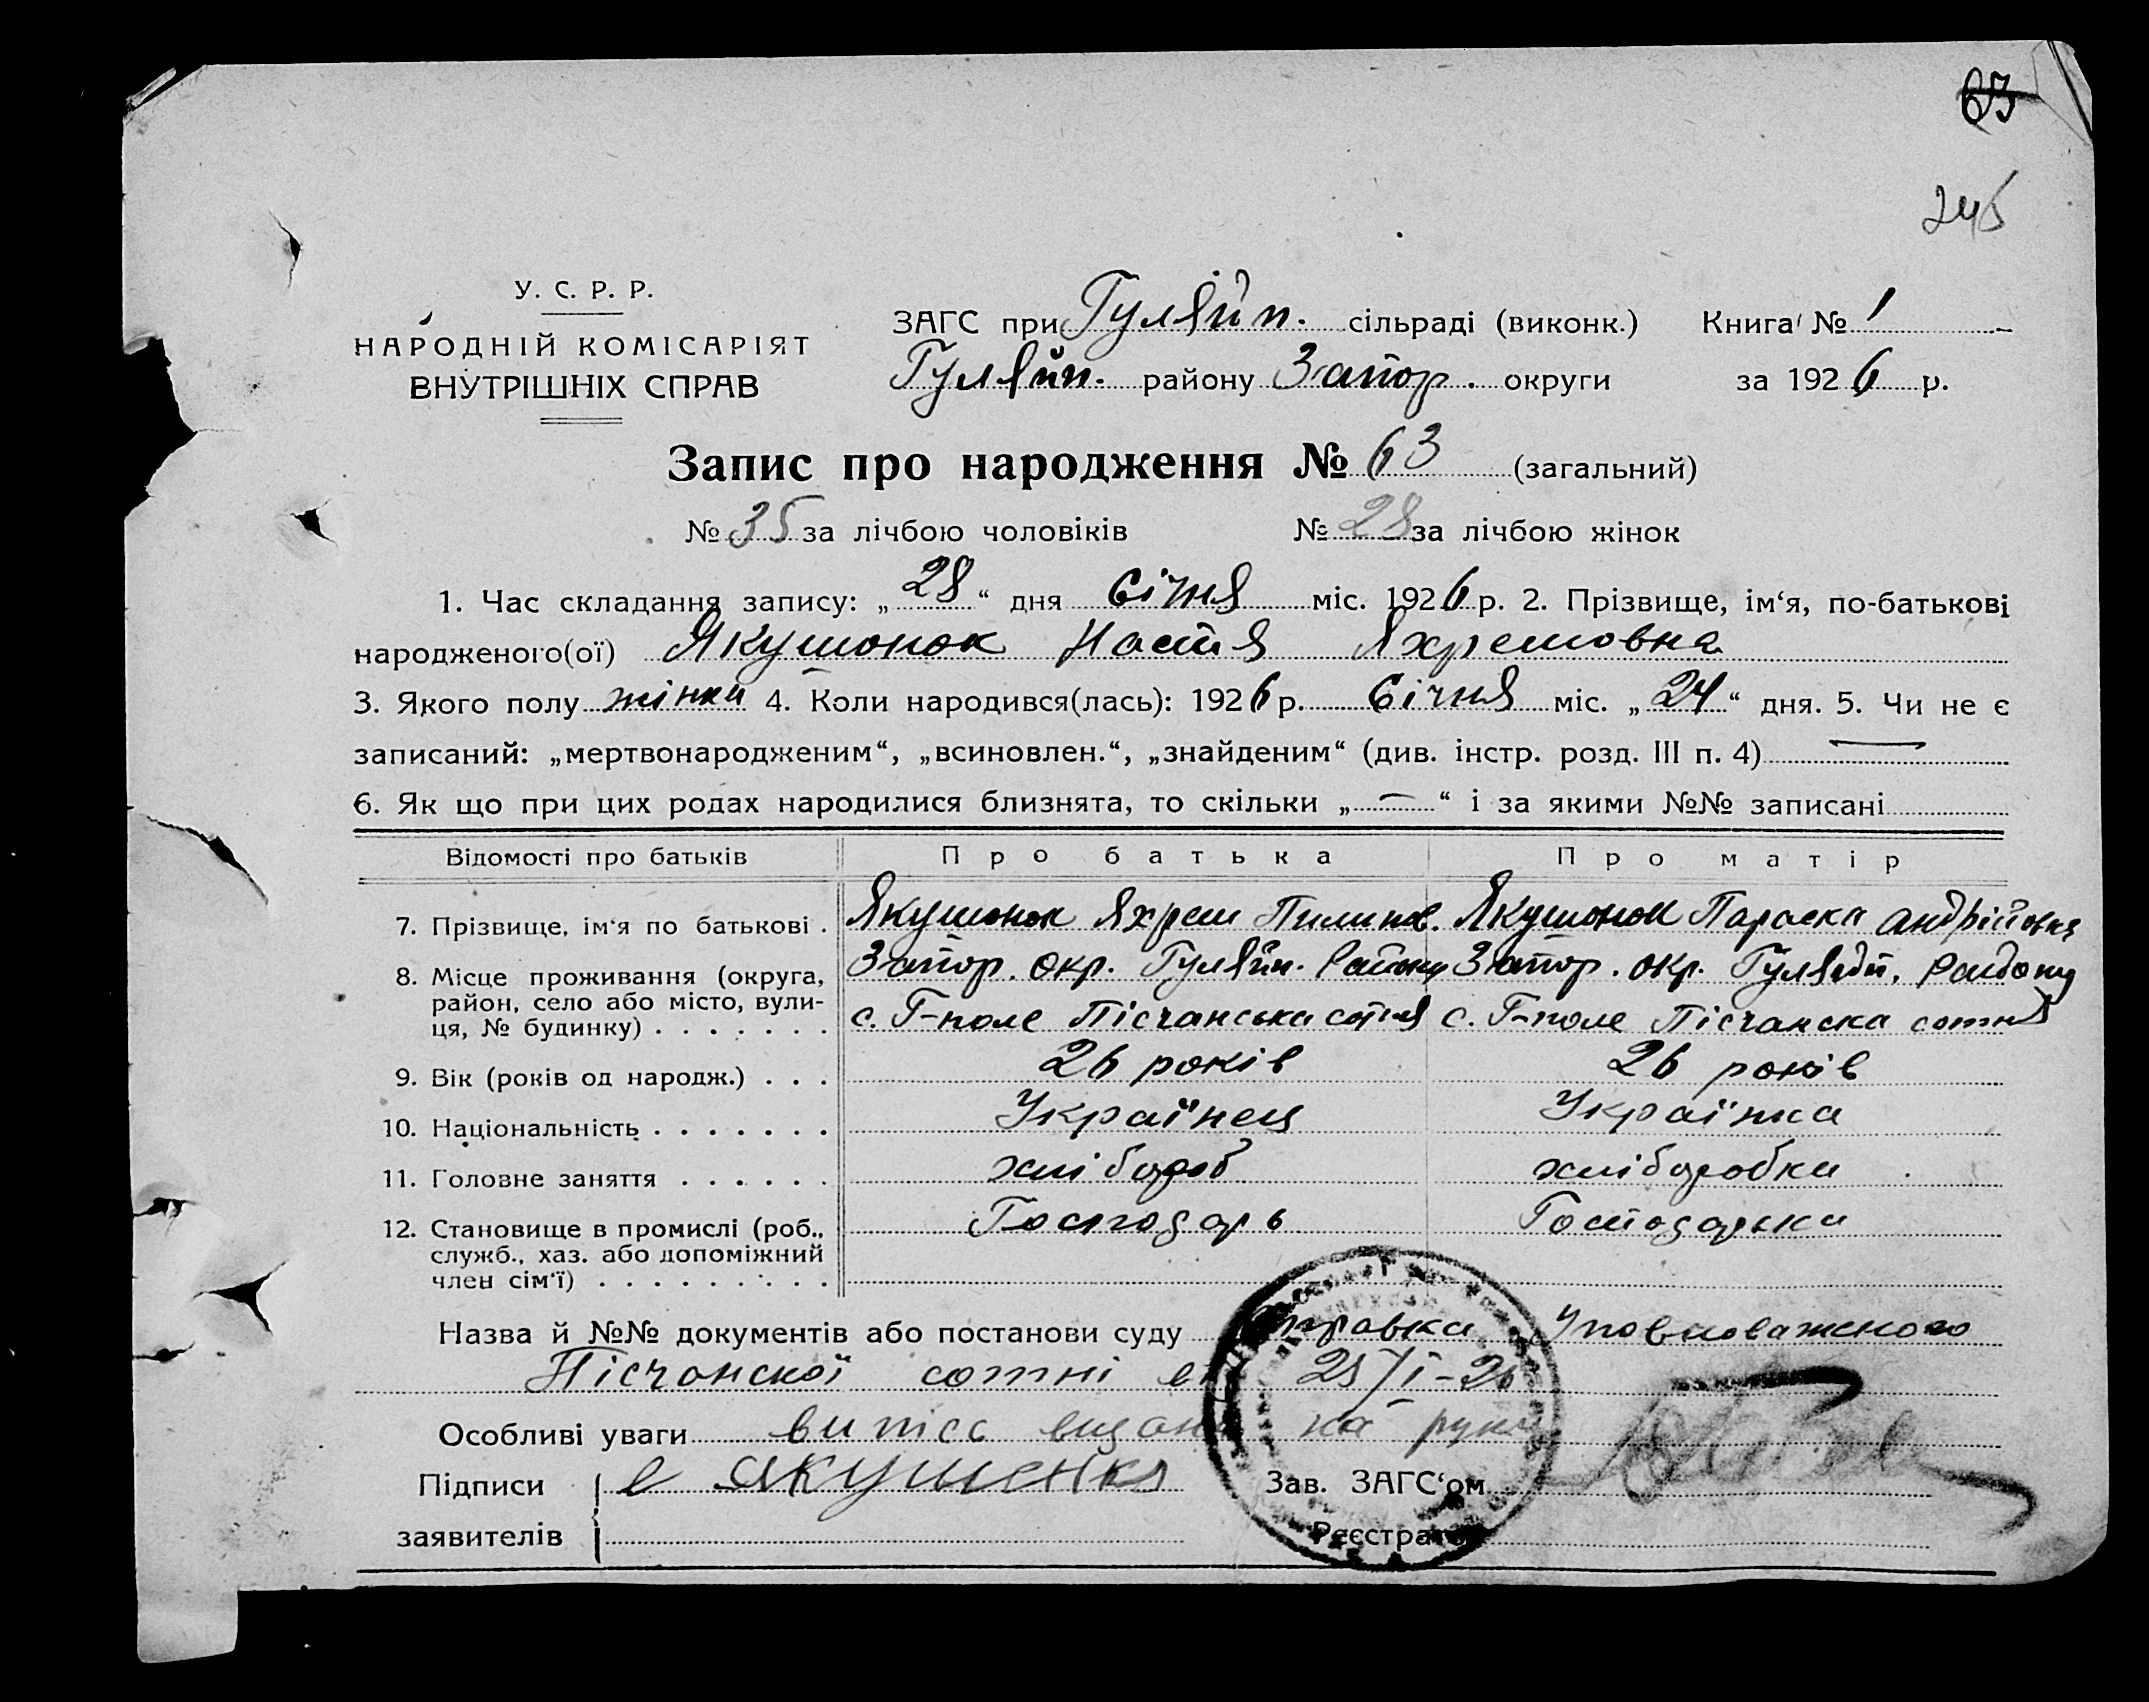 63
245
У. С. Р. Р.
НАРОДНІЙ КОМІСАРІЯТ
ВНУТРІШНІХ СПРАВ
ЗАГС при Гуляйп. сільраді (виконк.) Книга № 1
Гуляйп. району Запор. округи за 1926 р.
Запис про народження № 63 (загальний)
№ 35 за лічбою чоловіків № 28 за лічбою жінок
1. Час складання запису: „28“ дня Січня міс. 1926 р. 2. Прізвище, ім‘я, по-батькові
народженого(ої) Якушонок Настя Яхремовна
3. Якого полу жінки 4. Коли народився(лась): 1926 р. Січня міс. „24“ дня. 5. Чи не є
записаний: „мертвонародженим“, „всиновлен.“, „знайденим“ (див. інстр. розд. III п. 4) —
6. Як що при цих родах народилися близнята, то скільки „—“ і за якими №№ записані
Відомості про батьків Про батька Про матір
7. Прізвище, ім‘я по батькові . Якушонок Яхрем Пилипов. Якушонок Параска Андрійовна
8. Місце проживання (округа, Запор. окр. Гуляйп. Району Запор. окр. Гуляйп. Району
район, село або місто, вули-
ця, № будинку) . . . . . . . с. Г-поле Пісчанська сотня с. Г-поле Пісчанска сотня
9. Вік (років од народж.) . . . 26 років 26 років
10. Національність . . . . . . . Українец Українка
11. Головне заняття . . . . . . хлібороб хліборобка
12. Становище в промислі (роб., Господарь Господарка
служб., хаз. або допоміжний
член сім‘ї) . . . . . . . . . .
Назва й №№ документів або постанови суду справка Уповноваженого
Пісчанскої сотні 25/I-26
Особливі уваги випись видана на руки
Підписи Якушенко Зав. ЗАГС‘ом
заявителів Реєстратор